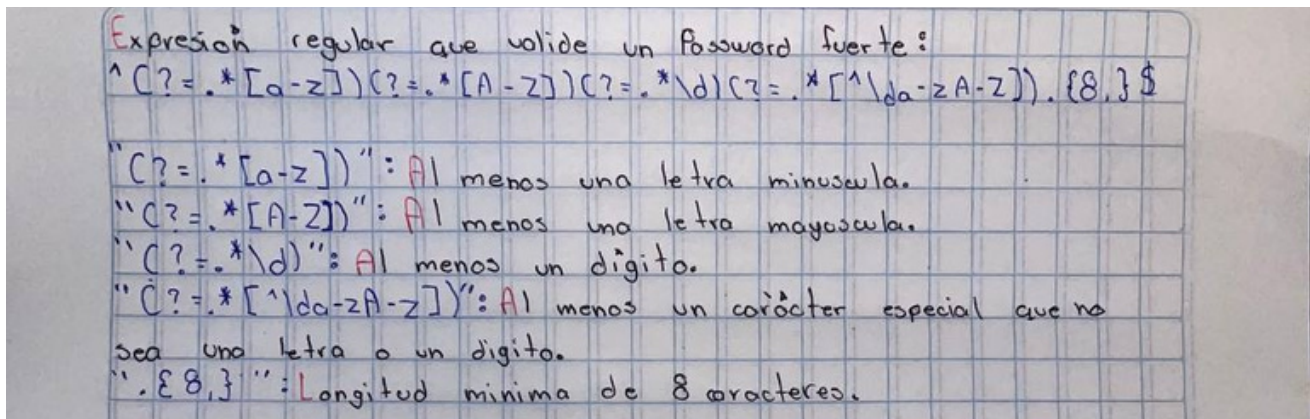 Expresión regular que valide un Password fuerte:
^(?=.*[a-z])(?=.*[A-Z])(?=.*\d)(?=.*[^\da-zA-Z]).{8,}$
"(?=.*[a-z])": Al menos una letra minuscula.
"(?=.*[A-Z])": Al menos una letra mayuscula.
"(?=.*\d)": Al menos un digito.
"(?=.*[^\da-zA-Z])": Al menos un carácter especial que no
sea una letra o un digito.
".{8,}": Longitud minima de 8 caracteres.